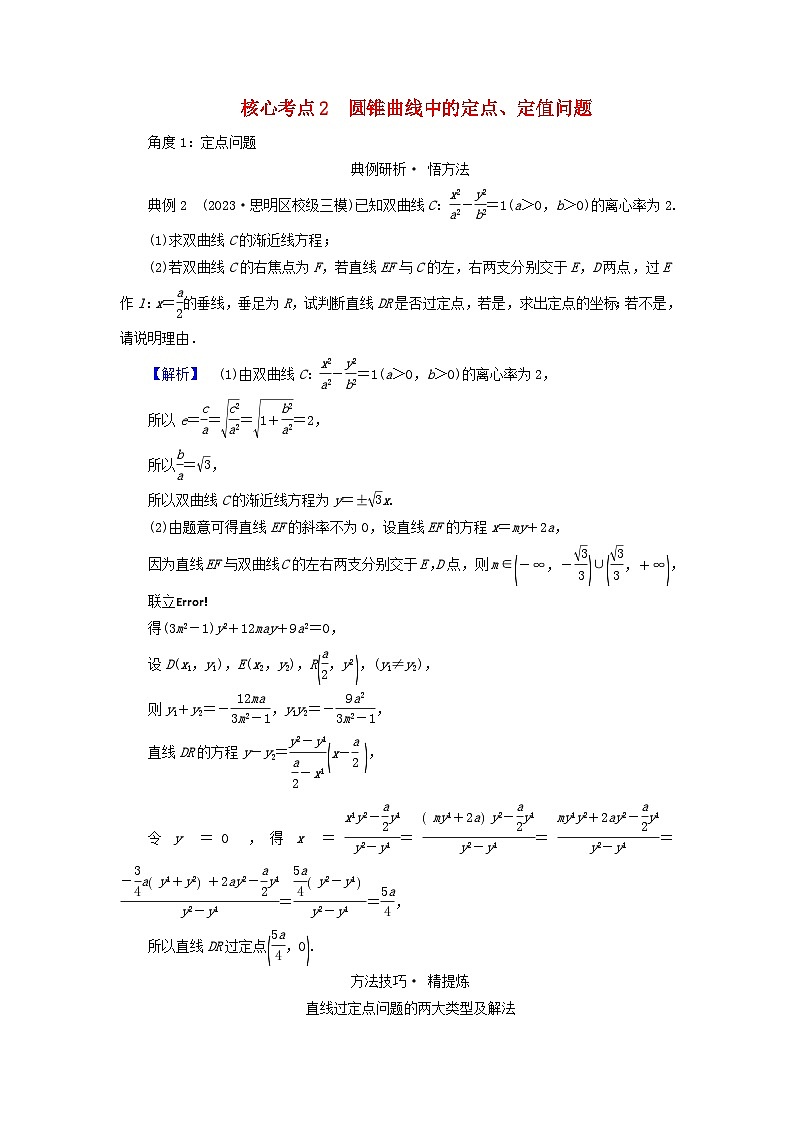 核心考点2　圆锥曲线中的定点、定值问题
角度1：定点问题
典例研析·悟方法
典例2　(2023·思明区校级三模)已知双曲线C：x²/a²－y²/b²＝1(a＞0，b＞0)的离心率为2.
(1)求双曲线C的渐近线方程；
(2)若双曲线C的右焦点为F，若直线EF与C的左，右两支分别交于E，D两点，过E
作l：x＝a/2的垂线，垂足为R，试判断直线DR是否过定点，若是，求出定点的坐标；若不是，
请说明理由.
【解析】　(1)由双曲线C：x²/a²－y²/b²＝1(a＞0，b＞0)的离心率为2，
所以e＝c/a＝√(c²/a²)＝√(1＋b²/a²)＝2，
所以b/a＝√3，
所以双曲线C的渐近线方程为y＝±√3x.
(2)由题意可得直线EF的斜率不为0，设直线EF的方程x＝my＋2a，
因为直线EF与双曲线C的左右两支分别交于E,D点，则m∈(－∞，－√3/3)∪(√3/3，＋∞)，
联立Error!
得(3m²－1)y²＋12may＋9a²＝0，
设D(x₁，y₁)，E(x₂，y₂)，R(a/2，y²)，(y₁≠y₂)，
则y₁＋y₂＝－12ma/(3m²－1)，y₁y₂＝－9a²/(3m²－1)，
直线DR的方程y－y₂＝(y²－y¹)/(a/2－x¹)(x－a/2)，
令y＝0，得x＝(x¹y²－a/2y¹)/(y²－y¹)＝((my¹＋2a)y²－a/2y¹)/(y²－y¹)＝(my¹y²＋2ay²－a/2y¹)/(y²－y¹)＝
(－3/4a(y¹＋y²)＋2ay²－a/2y¹)/(y²－y¹)＝(5a/4(y²－y¹))/(y²－y¹)＝5a/4，
所以直线DR过定点(5a/4，0).
方法技巧·精提炼
直线过定点问题的两大类型及解法